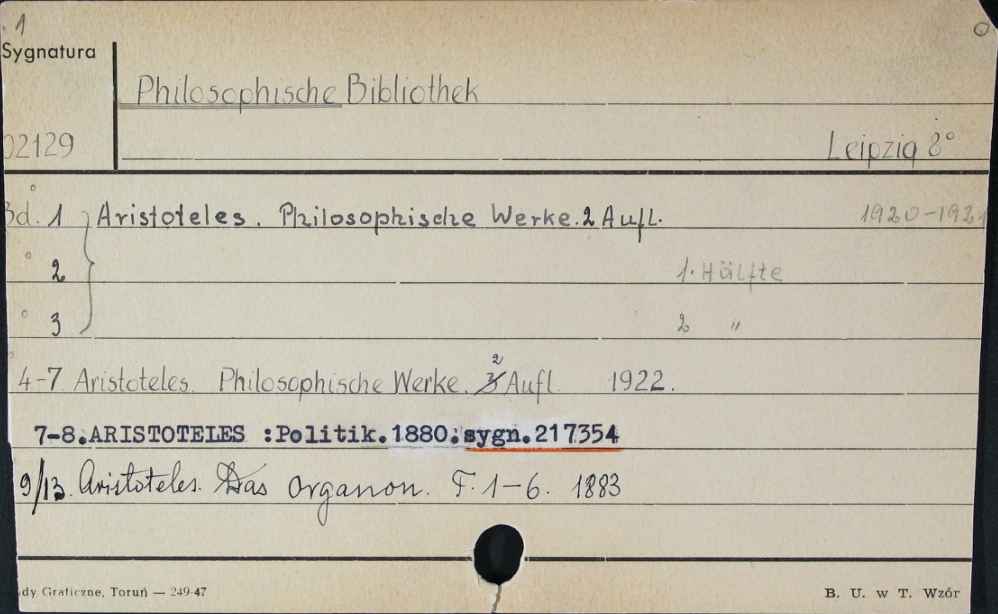 1
Sygnatura
Philosophische Bibliothek
02129
Leipzig 8°
Bd. 1 Aristoteles. Philosophische Werke. 2 Aufl. 1920-1921
2 1. Hälfte
3 2 "
4-7 Aristoteles. Philosophische Werke. 2 Aufl. 1922.
7-8.ARISTOTELES :Politik.1880.sygn.217354
9/13. Aristoteles. Das Organon. F. 1-6. 1883
dy Graficzne, Toruń — 249-47
B. U. w T. Wzór